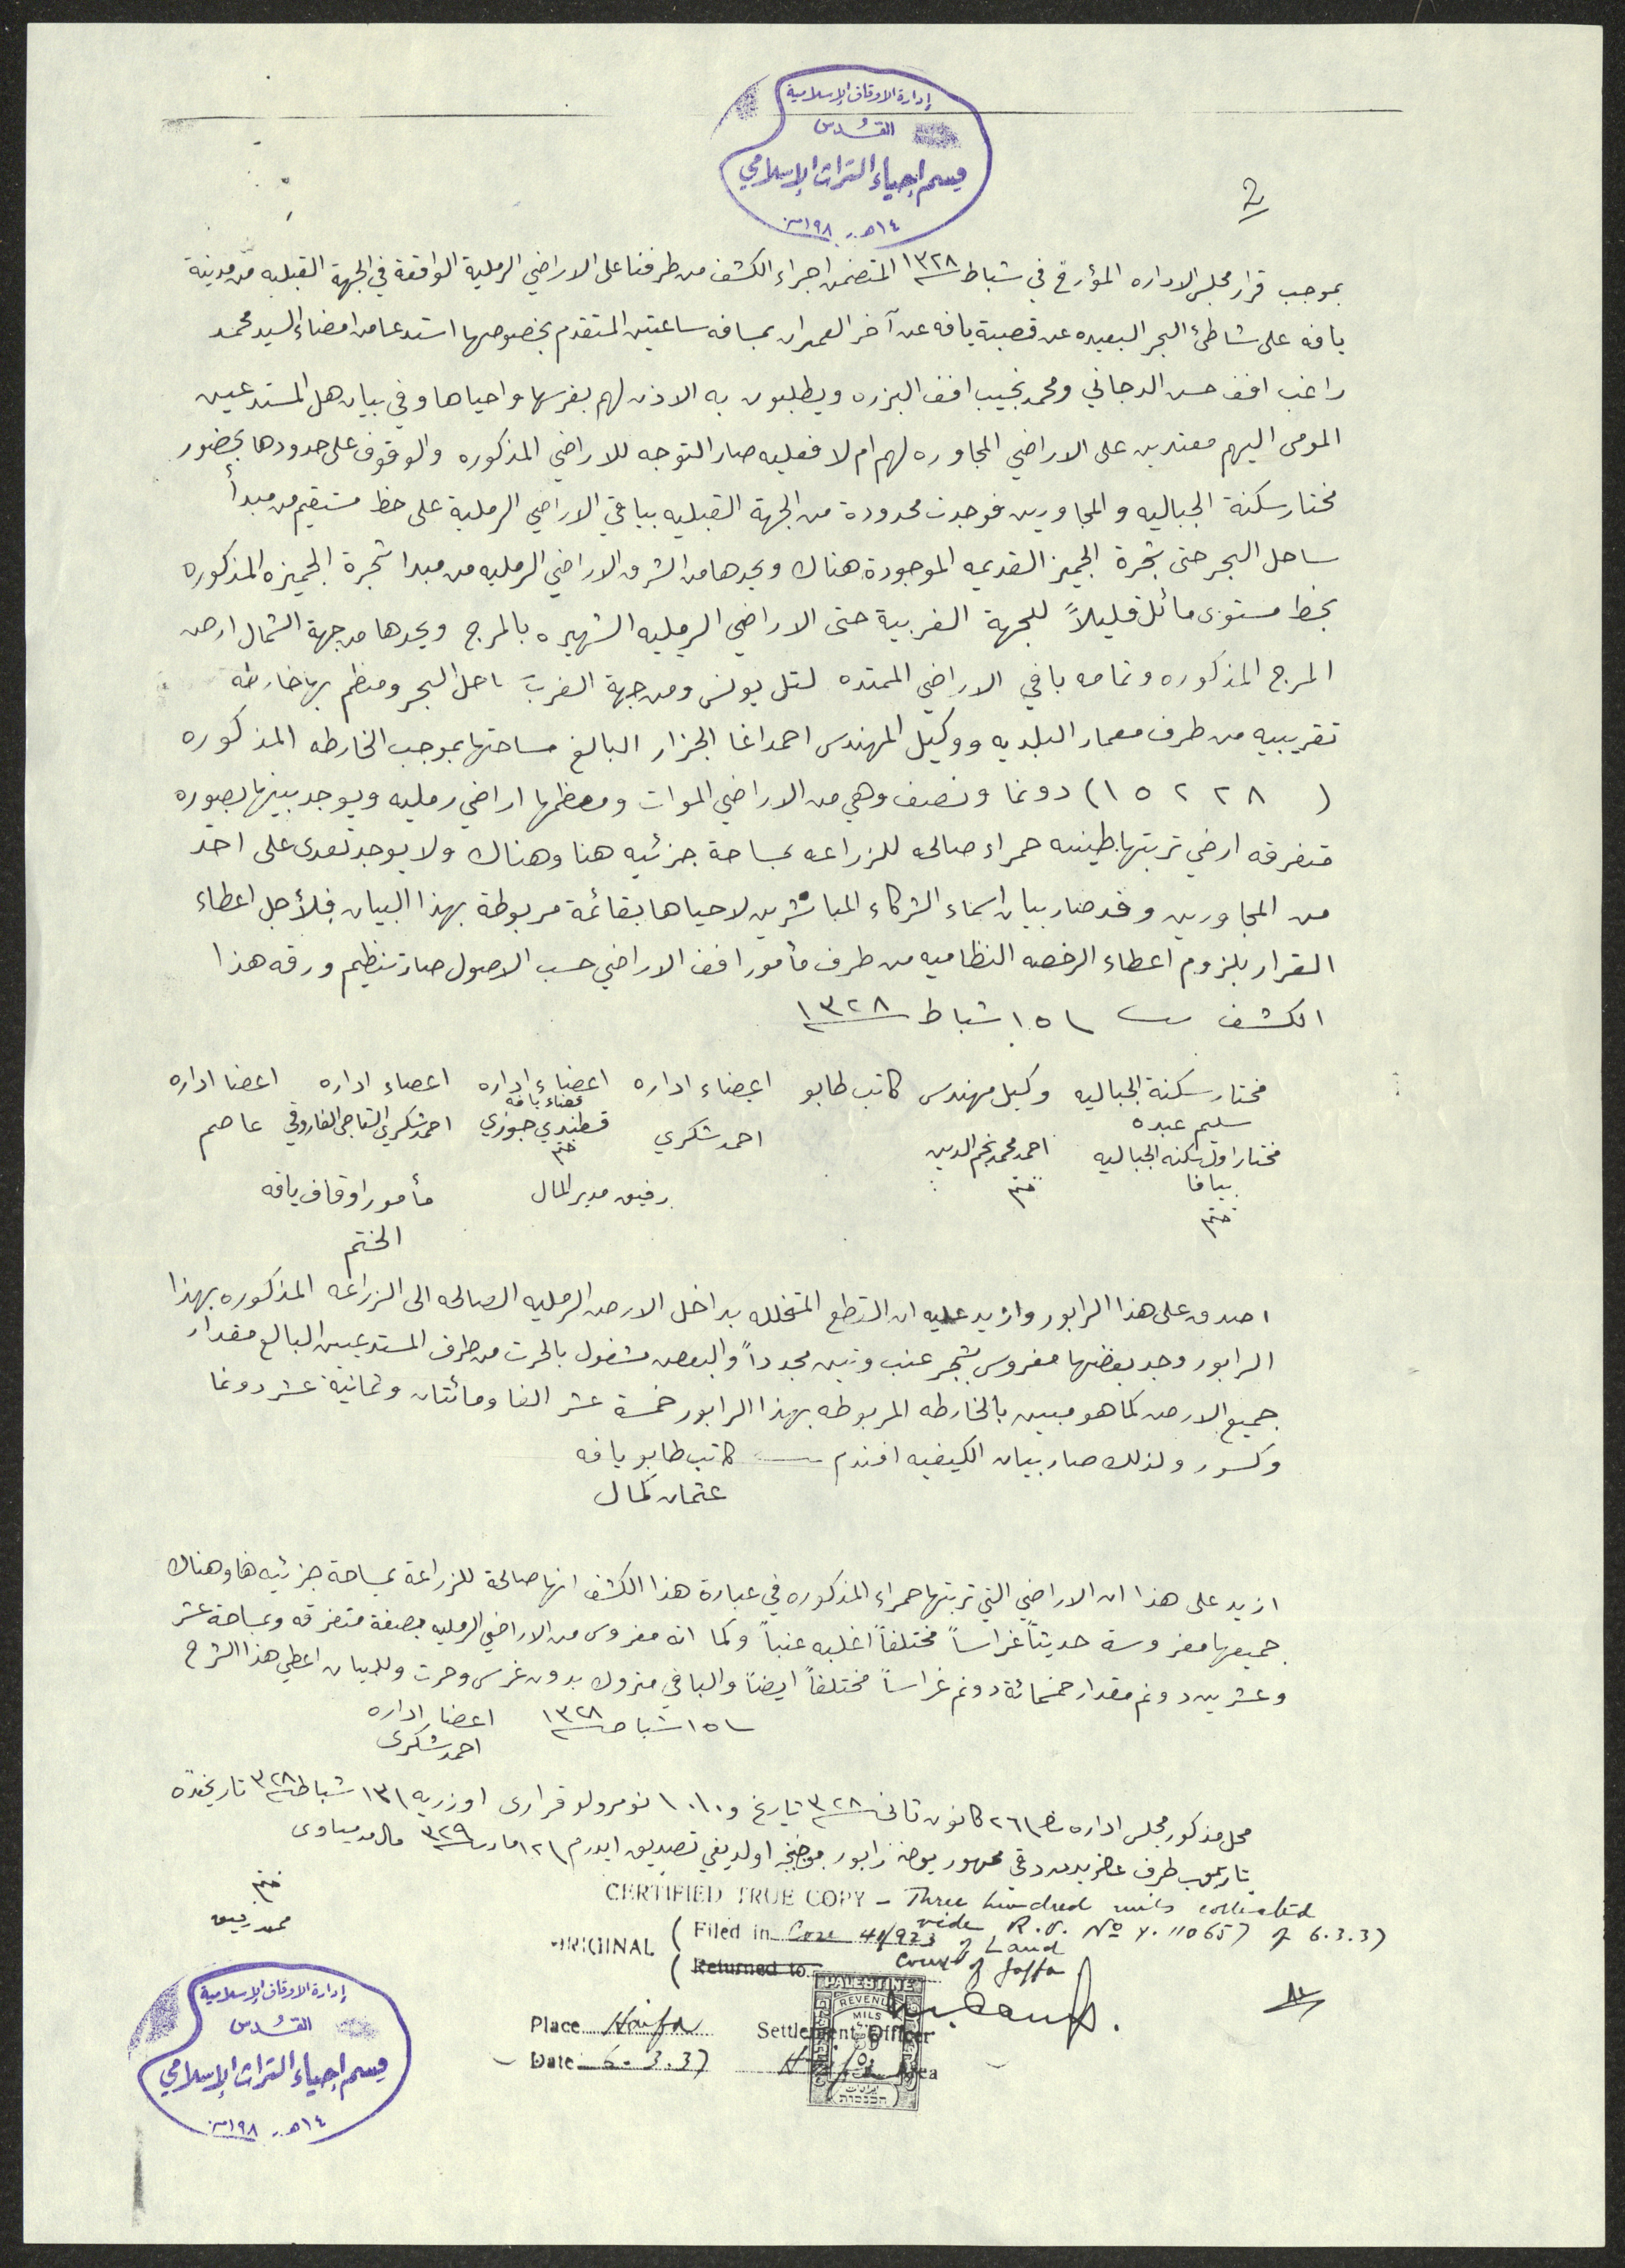 إدارة الاوقاف الإسلامية
القدس
قسم إحياء التراث الإسلامي
١٤هـ - ١٩٨م
بموجب قرار مجلس الاداره المؤرخ في شباط سنة ١٣٢٨ المتضمن اجراء الكشف من طرفنا على الاراضي الرملية الواقعة في الجهة القبليه من مدينة
يافه على شاطئ البحر البعيده عن قصبة يافه عن آخر العمران بمسافه ساعتين المتقدم بخصوصها استدعا من امضاء السيد محمد
راغب افف حسن الدجاني ومحمد نجيب افف البزره ويطلبون به الاذن لهم بغرسها واحياها وفي بيان هل المستدعين
المومى اليهم معتدين على الاراضي المجاوره لهم ام لا فعليه صار التوجه للاراضي المذكوره والوقوف على حدودها بحضور
مختار سكنة الجباليه والمجاورين فوجدت محدودة من الجهة القبليه بباقي الاراضي الرملية على خط مستقيم من مبدأ
ساحل البحر حتى شجرة الجميز القديمه الموجودة هناك ويحدها من الشرق الاراضي الرمليه من مبدا شجرة الجميزه المذكوره
بخط مستوى مائل قليلاً للجهة الغربية حتى الاراضي الرمليه الشهيره بالمرج ويحدها من جهة الشمال ارض
المرج المذكوره وتمامه باقي الاراضي الممتده لتل يونس ومن جهة الغرب ساحل البحر ومنظم بها خارطه
تقريبيه من طرف معمار البلديه ووكيل المهندس احمد اغا الجزار البالغ مساحتها بموجب الخارطه المذكوره
(١٥٢٢٨) دونما ونصف وهي من الاراضي الموات ومعظمها اراضي رمليه ويوجد بينها بصوره
متفرقه ارضي تربتها طينيه حمراء صالحه للزراعه بمساحة جزئيه هنا وهناك ولا يوجد تعدى على احد
من المجاورين وقد صار بيان اسماء الشركاء المباشرين لاحياها بقائمة مربوطة بهذا البيان فلأجل اعطاء
القرار بلزوم اعطاء الرخصه النظاميه من طرف مأمور افف الاراضي حسب الاصول صار تنظيم ورقه هذا
الكشف ١٥ شباط سنة ١٣٢٨
مختار سكنة الجباليه وكيل مهندس كاتب طابو اعضاء اداره اعضاء اداره اعضاء اداره اعضا اداره
سليم عبده قضاء يافه
مختار اول سكنه الجباليه احمد محمد نجم الدين احمد شكري قسطندي جبوزي احمد شكري التاجي الفاروقي عاصم
بيافا ختم ختم
ختم رفيق مدير المال مأمور اوقاف يافه
الختم
اصدق على هذا الرابور وازيد عليه ان القطع المتخلله بداخل الارض الرمليه الصالحه الى الزراعه المذكوره بهذا
الرابور وجد بعضها مغروس شجر عنب وتين مجدداً والبعض مشغول بالحرث من طرف المستدعيين البالغ مقدار
جميع الارض كما هو مبين بالخارطه المربوطه بهذا الرابور خمسة عشر الفا ومائتان وثمانية عشر دونما
وكسور ولذلك صار بيان الكيفيه افندم كاتب طابو يافه
عثمان كمال
ازيد على هذا ان الاراضي التي تربتها حمراء المذكوره في عبارة هذا الكشف انها صالحة للزراعة بمساحة جزئيه هنا وهناك
جميعها مغروسة حديثاً غراساً مختلفاً اغلبه عنباً وكما انه مغروس من الاراضي الرمليه بصفة متفرقه وبمساحة عشر
وعشرين دونم مقدار خمسمائة دونم غراساً مختلفاً ايضاً والباقي متروك بدون غرس وحرث وللبيان اعطي هذا الشرح
١٥ شباط سنة ١٣٢٨ اعضاء اداره
احمد شكري
محل مذكور مجلس اداره ٢٦ كانون ثاني سنة ٣٢٨ تاريخ و نومرولو قرارى اوزريه ١٣ شباط سنة ٣٢٨ تاريخنده
طرف رابور اولديغي تصديق ايدرم ١٢ مارت سنة ٣٢٩
ختم
محمد رفيق
CERTIFIED TRUE COPY - Three hundred mils collected
vide R.V. No Y. 110657 of 6.3.37
ORIGINAL (Filed in Case 41/923 of Land
(Returned to Court of Jaffa
PALESTINE
REVENUE
MILS
Place Haifa Settlement Officer
Date 6.3.37 Haifa Area
إدارة الاوقاف الإسلامية
القدس
قسم إحياء التراث الإسلامي
١٤هـ - ١٩٨م